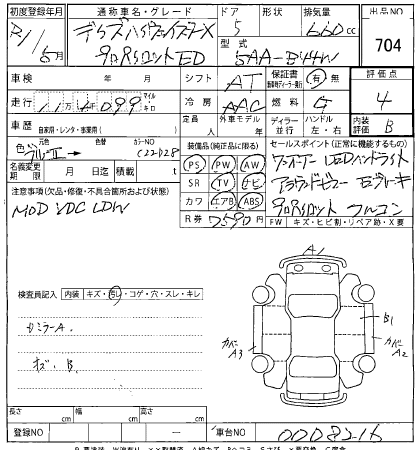 初度登録年月 通称車名・グレード ドア 形状 排気量 出品NO
R1/5月 デイズハイウェイスターX 5 660cc 704
プロパイロットED 型式 5AA-B44W
車検 年 月 シフト AT 保証書 有 無 評価点
走行 11,099 マイル キロ 冷房 AAC 燃料 G 4
車歴 自家用・レンタ・事業用( ) 定員 人 外車モデル 年 ディーラー 並行 ハンドル 左・右 内装評価 B
色 ブルーII→ カラーNO 装備品(純正品に限る) セールスポイント(正常に機能するもの)
名義変更期限 月 日迄 積載 t PS PW AW ワンオーナー LEDヘッドライト
注意事項(欠品・修復・不具合箇所および状態) SR TV ナビ アラウンドビュー Eブレーキ
MOD VDC LDW カワ エアB ABS プロパイロット フルコン
R券 7590円 FW キズ・ヒビ割・リペア跡・X要
検査員記入 内装 キズ・ヨゴレ・コゲ・穴・スレ・キレ
A1
カミラーA.
B1
カバーA3
カバーA2
キズ.B
長さ cm 幅 cm 高さ cm
登録NO 車台NO 0008216